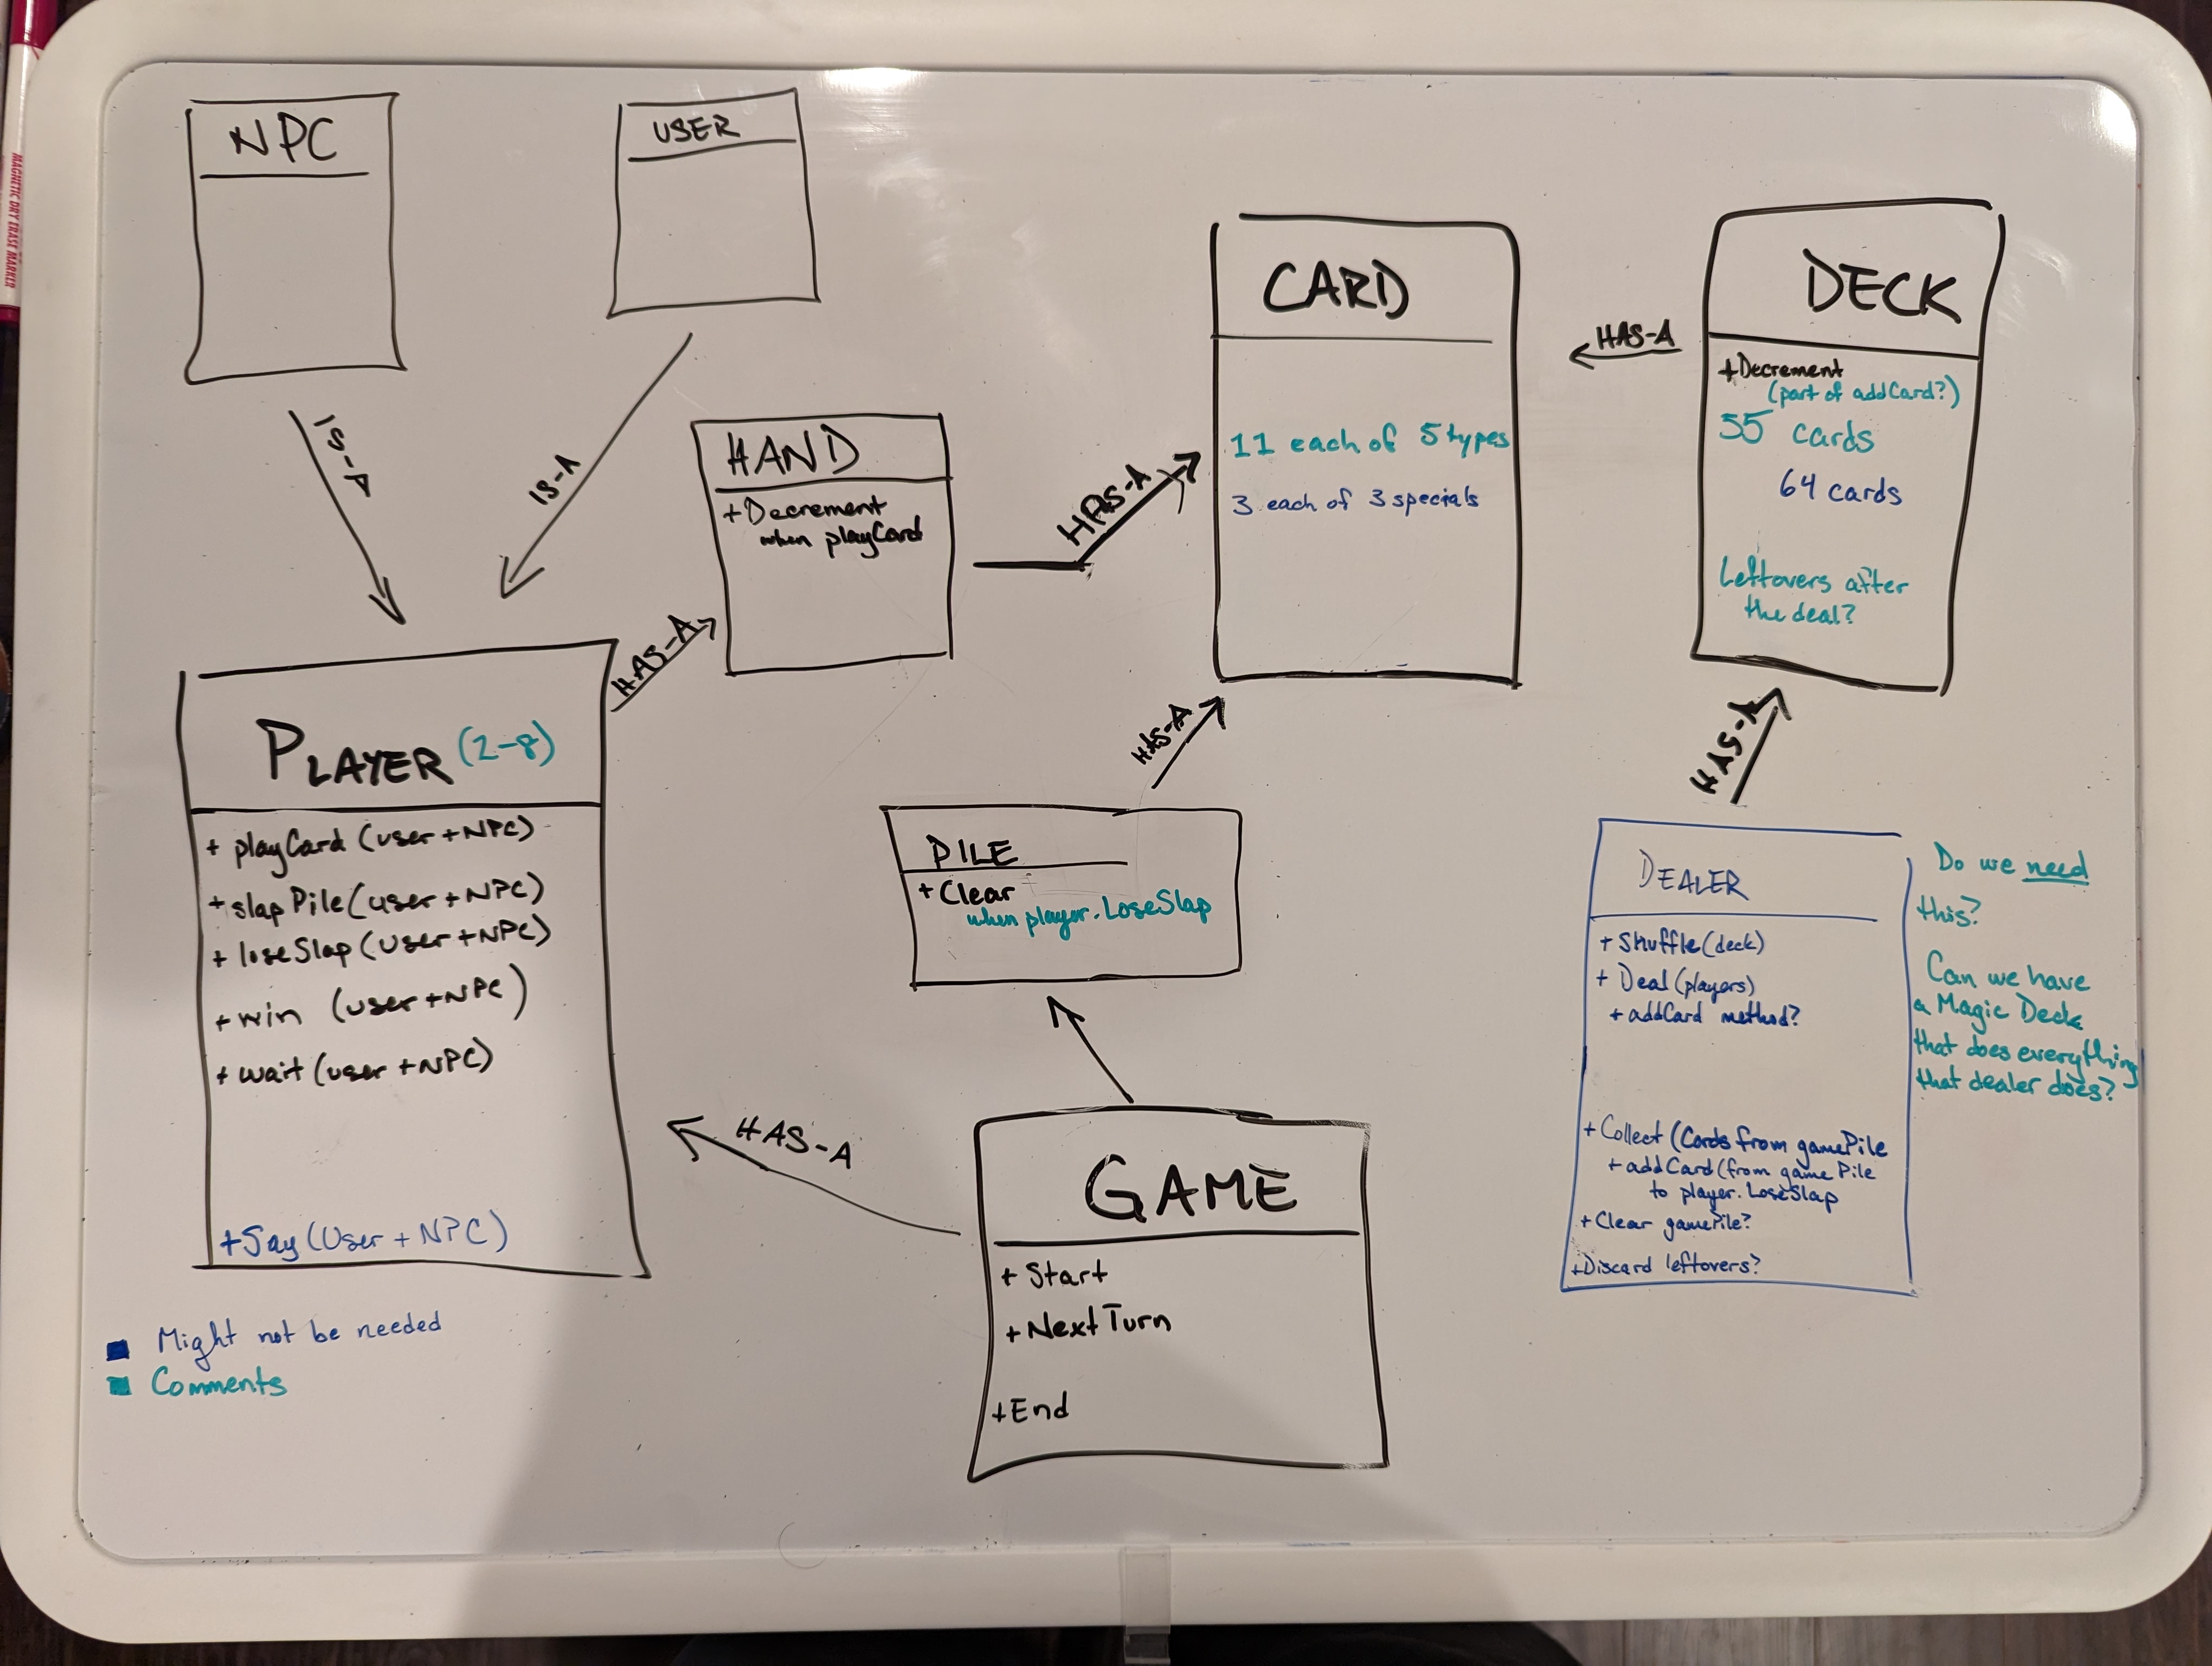 MAGNETIC DRY ERASE MARKER
NPC
USER
IS-A
IS-A
HAND
+Decrement
when playCard
HAS-A
HAS-A
CARD
11 each of 5 types
3 each of 3 specials
HAS-A
DECK
+Decrement
(part of addCard?)
55 cards
64 cards
Leftovers after
the deal?
PLAYER (2-8)
+ playCard (user+NPC)
+slapPile(user+NPC)
+ loseSlap (user+NPC)
+win (user+NPC)
+ wait (user+NPC)
+Say (User + NPC)
HAS-A
PILE
+Clear
when player.LoseSlap
HAS-A
DEALER
+ Shuffle(deck)
+ Deal (players)
+ addCard method?
+ Collect (Cards from gamePile
+ addCard (from game Pile
to player.LoseSlap
+ Clear gamePile?
+Discard leftovers?
Do we need
this?
Can we have
a Magic Deck
that does everything
that dealer does?
HAS-A
GAME
+ Start
+NextTurn
+End
Might not be needed
Comments